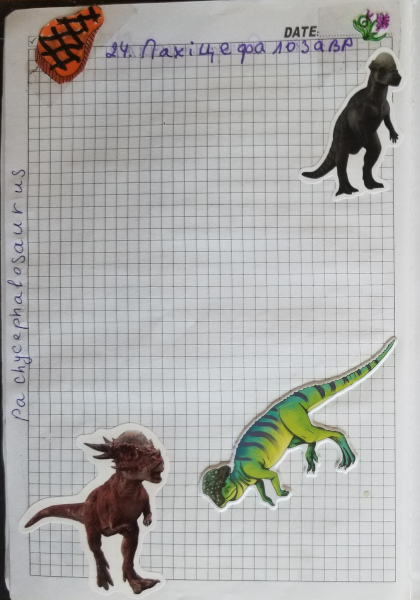 DATE:
24. Пахіцефалозавр
Pachycephalosaurus